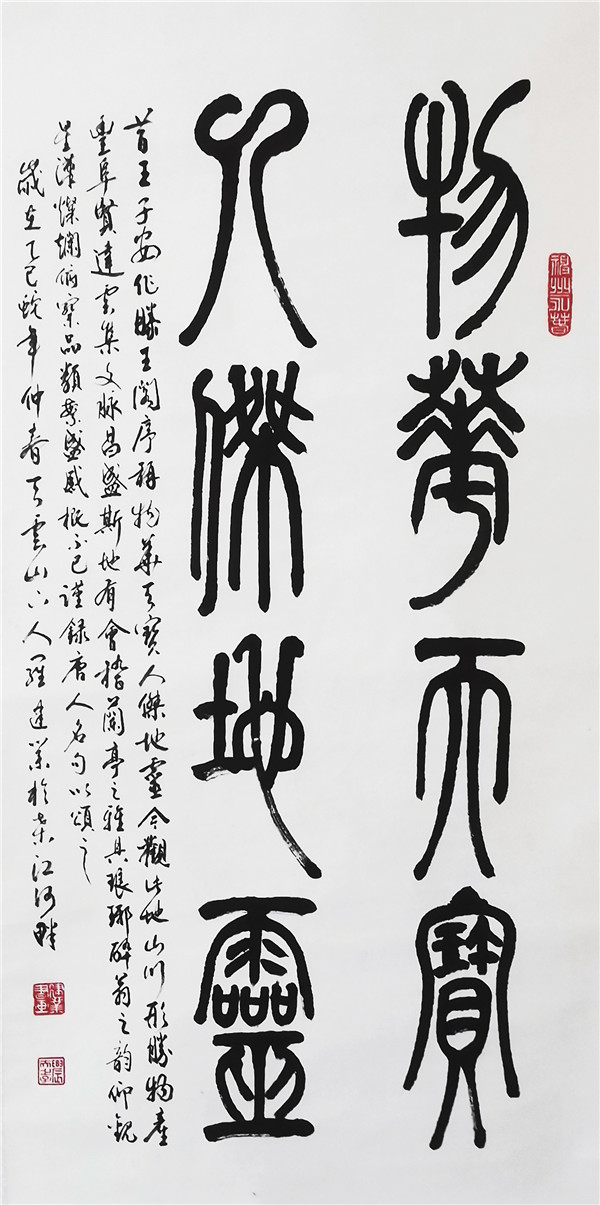 物華天寶
人傑地靈
昔王子安作滕王閣序稱物華天寶人傑地靈今觀此地山川形勝物產
豐阜賢達雲集文脉昌盛斯地有會稽蘭亭之雅具琅琊醉翁之韵仰觀
星漢燦爛俯察品類繁盛感概不已謹錄唐人名句以頌之
歲在乙巳蛇年仲春天雲山下人羅建業於江河畔
建業書畫